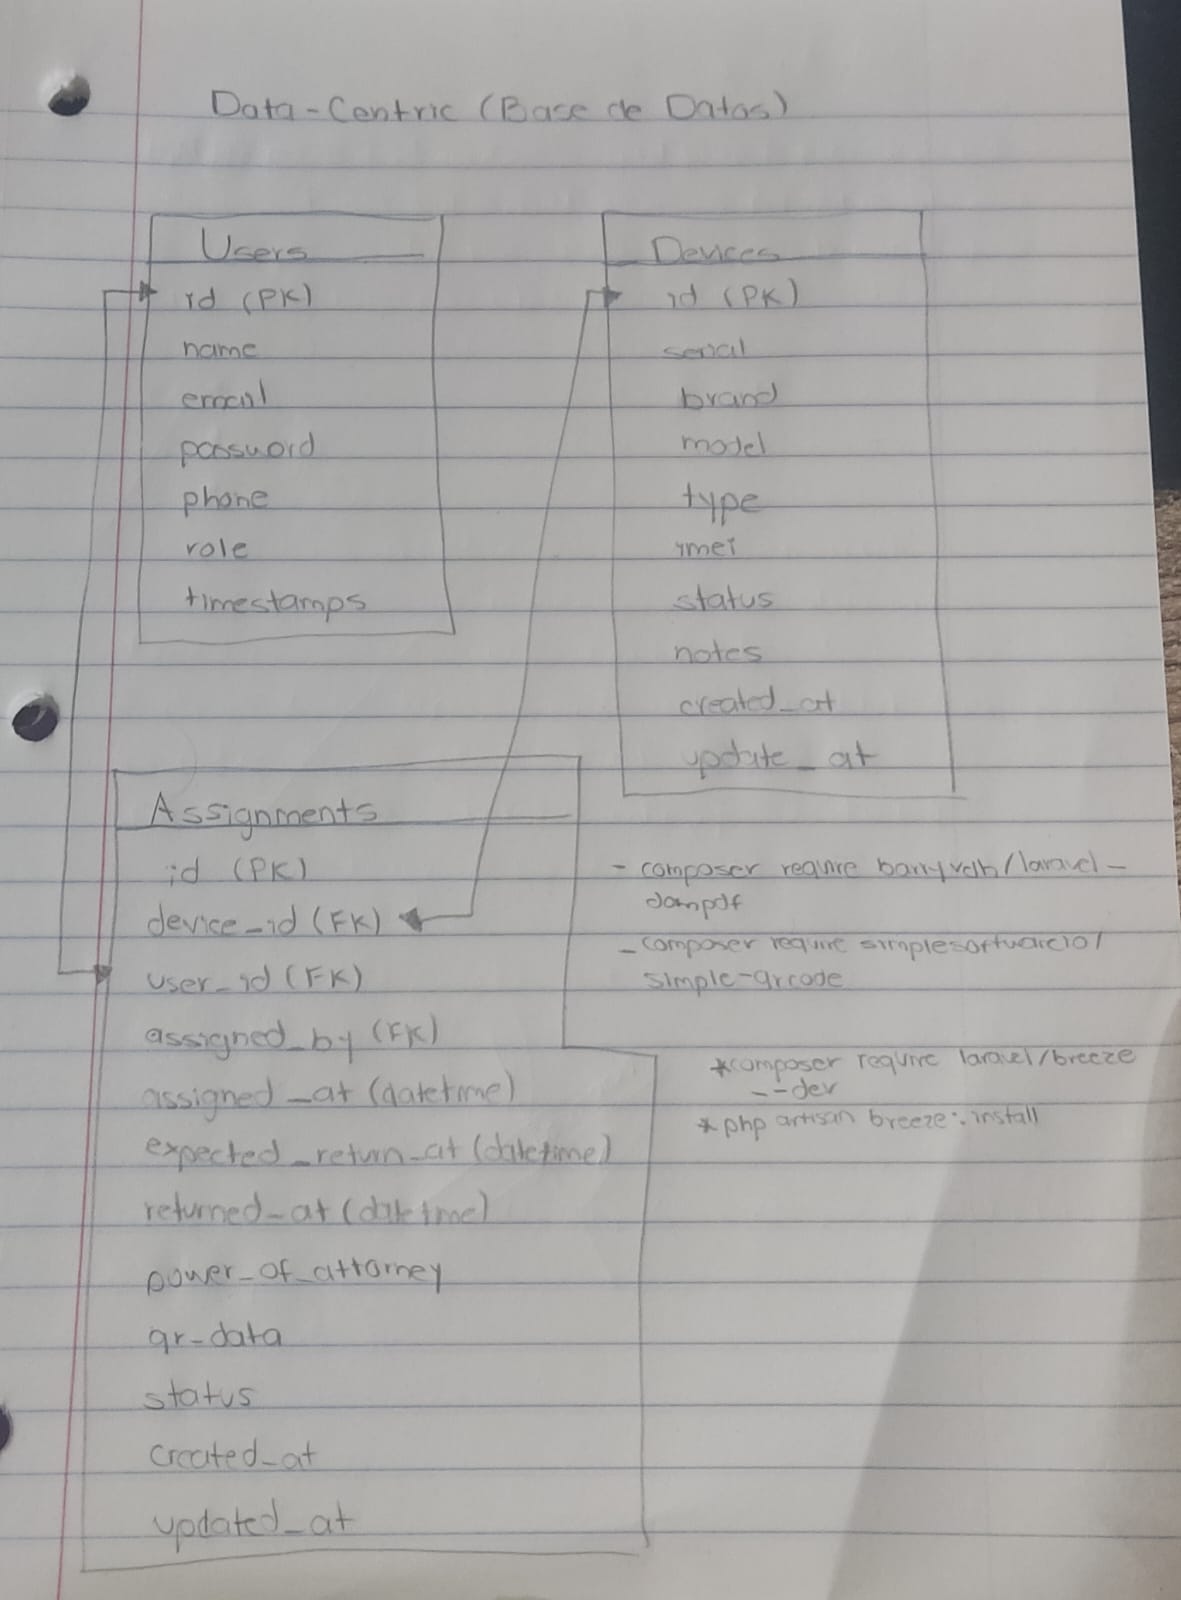 Data-Centric (Base de Datos)
Users
id (PK)
name
email
password
phone
role
timestamps
Devices
id (PK)
serial
brand
model
type
imei
status
notes
created_at
update_at
Assignments
id (PK)
device_id (FK)
user_id (FK)
assigned_by (FK)
assigned_at (datetime)
expected_return_at (datetime)
returned_at (datetime)
power_of_attorney
qr_data
status
created_at
updated_at
- composer require barryvdh/laravel-
dompdf
- composer require simplesoftwareio/
simple-qrcode
*composer require laravel/breeze
--dev
* php artisan breeze:install